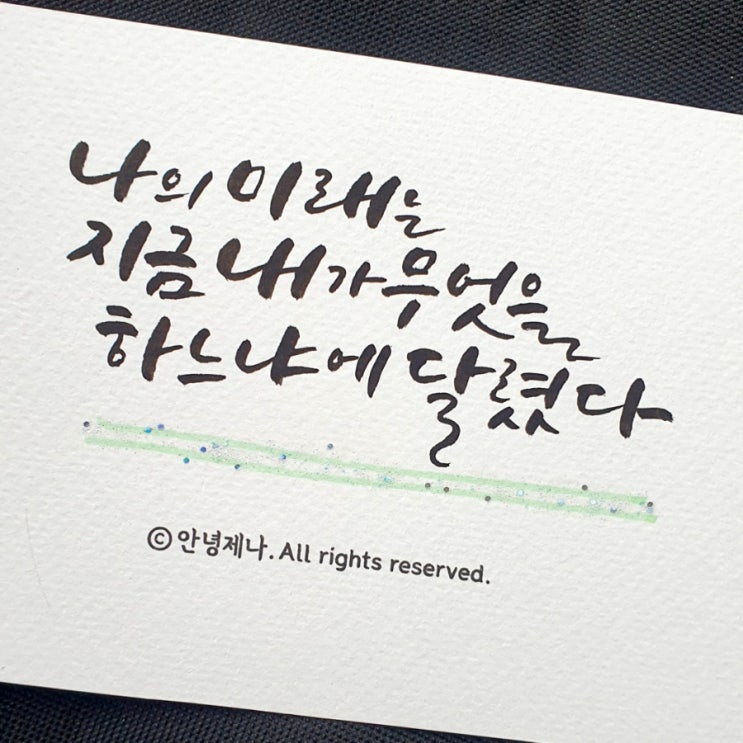 나의 미래는
지금 내가 무엇을
하느냐에 달렸다
ⓒ안녕제나. All rights reserved.